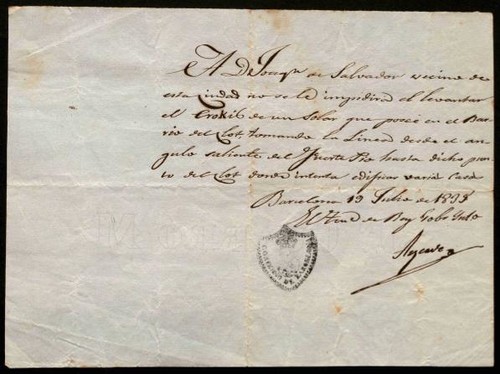 A D. Joaqn. de Salvador vecino de
esta Ciudad no se le impedirá el levantar
el Crokil de un Solar que posée en el Bar-
rio del Clot, tomando la Linea desde el an-
gulo saliente del Fuerte Pio hasta dicho pun-
to del Clot donde intenta edificar varias casas
Barcelona 19 Julio de 1835
El Ten.te de Rey Gobr. Into
Ayerve